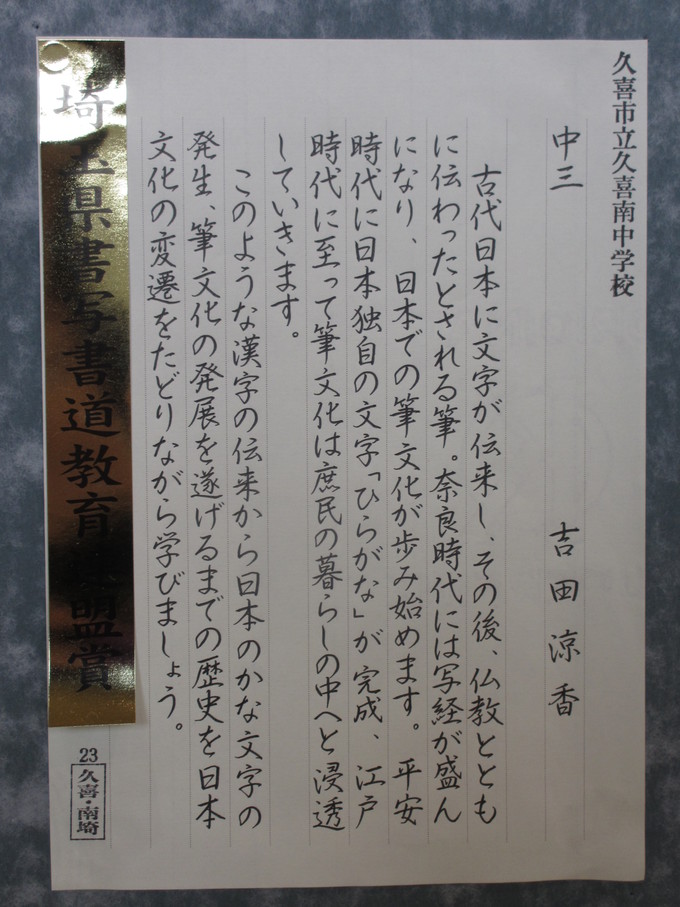 久喜市立久喜南中学校
中三 吉田涼香
古代日本に文字が伝来し、その後、仏教ととも
に伝わったとされる筆。奈良時代には写経が盛ん
になり、日本での筆文化が歩み始めます。平安
時代に日本独自の文字「ひらがな」が完成、江戸
時代に至って筆文化は庶民の暮らしの中へと浸透
していきます。
このような漢字の伝来から日本のかな文字の
発生、筆文化の発展を遂げるまでの歴史を日本
文化の変遷をたどりながら学びましょう。
埼玉県書写書道教育連盟賞
23
久喜・南埼